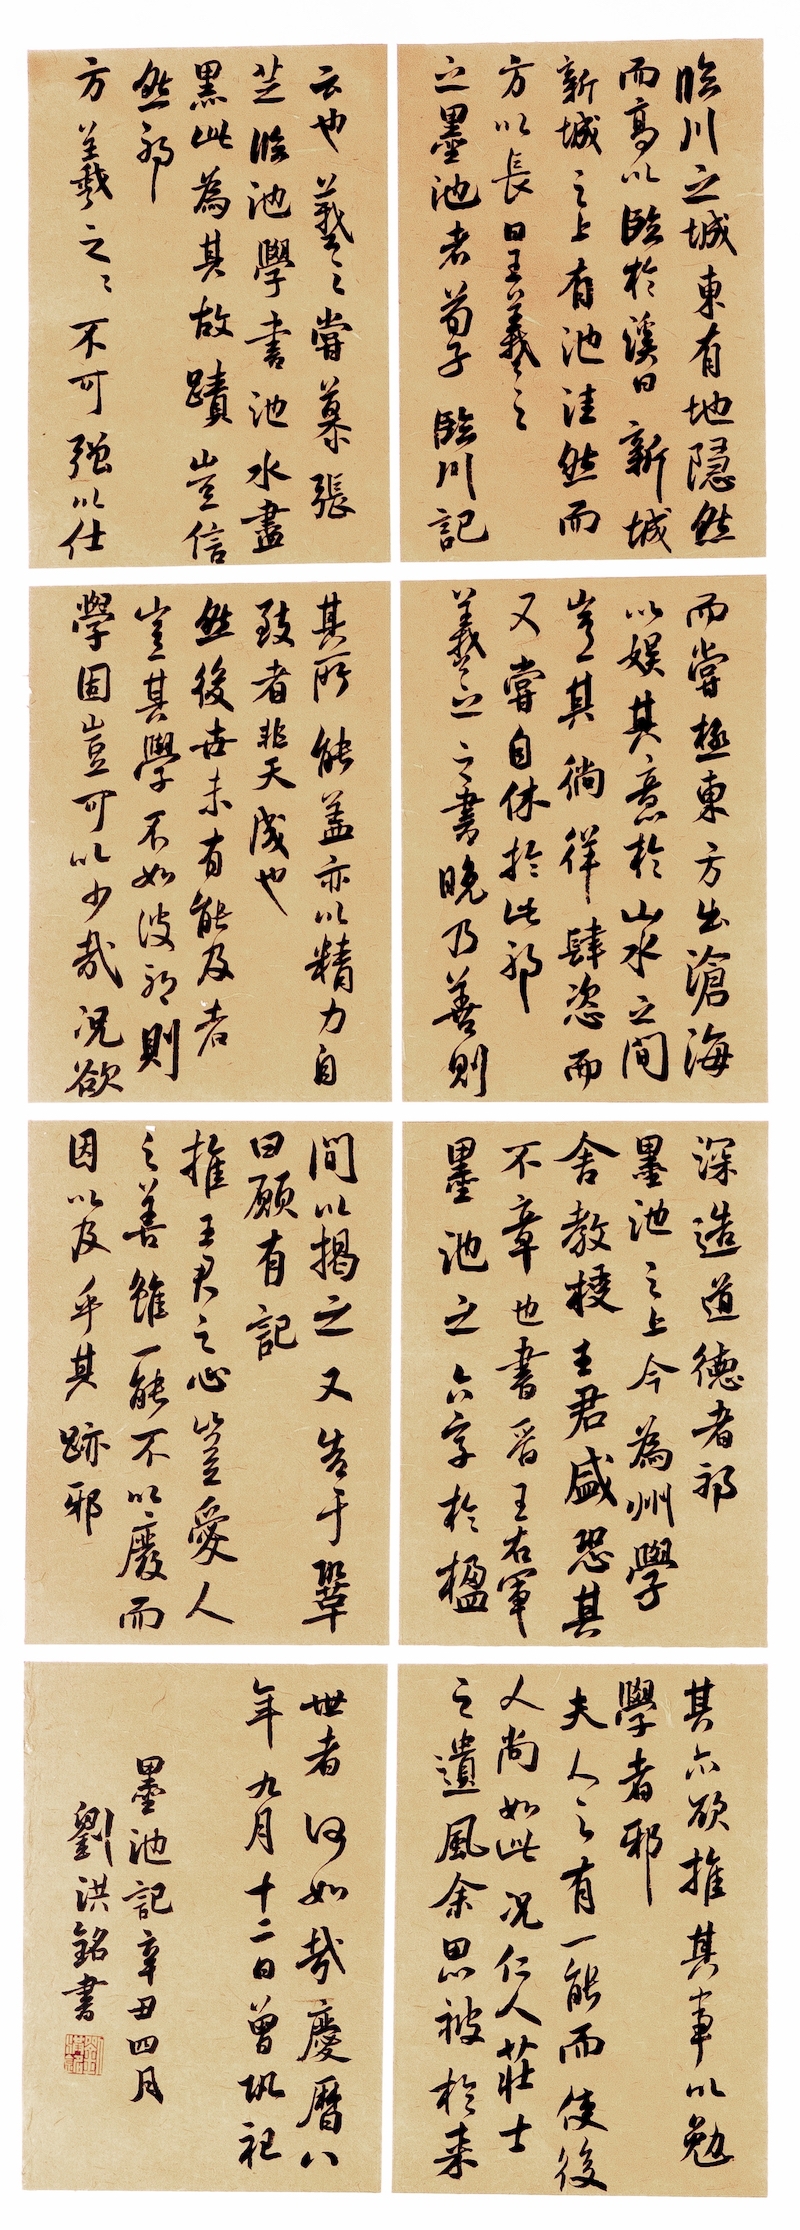 臨川之城東有地隱然
而高以臨於溪曰新城
新城之上有池洼然而
方以長曰王羲之
之墨池者荀子臨川記
云也羲之嘗慕張
芝臨池學書池水盡
黑此為其故蹟豈信
然邪
方羲之之不可強以仕
而嘗極東方出滄海
以娛其意於山水之間
豈其徜徉肆恣而
又嘗自休於此邪
羲之之書晚乃善則
其所能蓋亦以精力自
致者非天成也
然後世未有能及者
豈其學不如彼邪則
學固豈可以少哉况欲
深造道德者邪
墨池之上今為州學
舍教授王君盛恐其
不章也書晉王右軍
墨池之六字於楹
間以揭之又告于鞏
曰願有記
推王君之心豈愛人
之善雖一能不以廢而
因以及乎其跡邪
其亦欲推其事以勉
學者邪
夫人之有一能而使後
人尚如此况仁人莊士
之遺風余思被於来
世者何如哉慶曆八
年九月十二日曾鞏記
墨池記辛丑四月
劉洪銘書